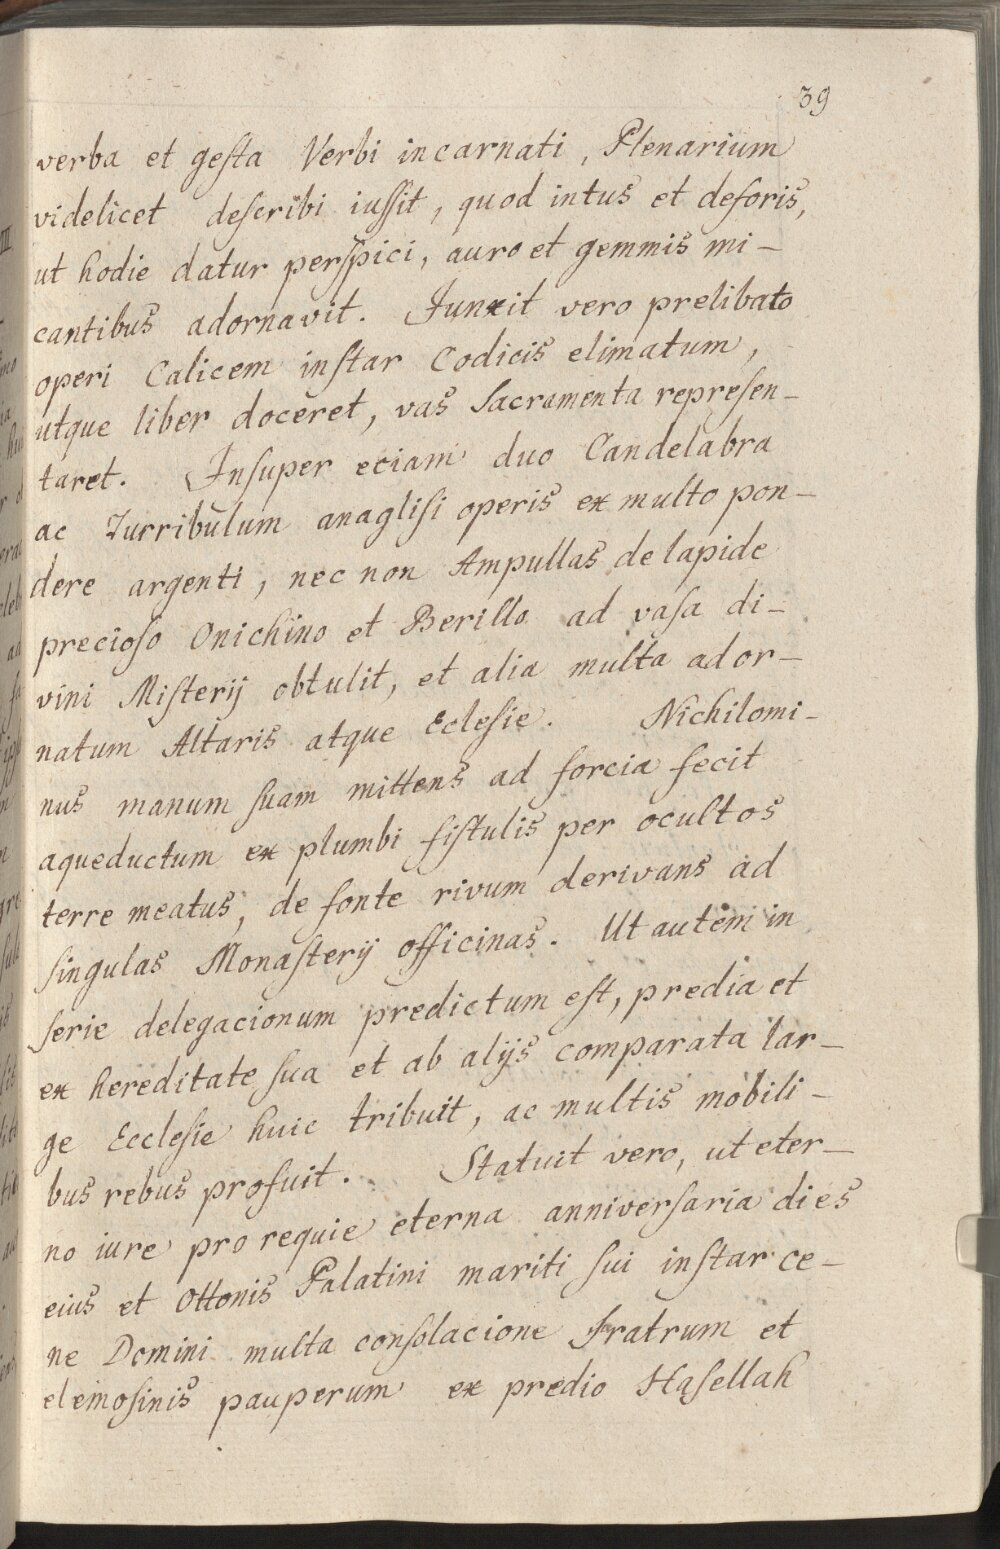 39
verba et geſta Verbi incarnati, Plenarium
videlicet deſcribi iuſſit, quod intus et deforis,
ut hodie datur perſpici, auro et gemmis mi-
cantibus adornavit. Junxit vero prelibato
operi Calicem inſtar Codicis elimatum,
utque liber doceret, vas Sacramenta repreſen-
taret. Inſuper eciam duo Candelabra
ac Turribulum anagliſi operis ex multo pon-
dere argenti, nec non Ampullas de lapide
precioſo Onichino et Berillo ad vaſa di-
vini Miſterij obtulit, et alia multa ador-
natum Altaris atque Ecleſie. Nichilomi-
nus manum ſuam mittens ad forcia fecit
aqueductum ex plumbi fiſtulis per ocultos
terre meatus, de fonte rivum derivans ad
ſingulas Monaſterij officinas. Ut autem in
ſerie delegacionum predictum eſt, predia et
ex hereditate ſua et ab alijs comparata lar-
ge Eccleſie huic tribuit, ac multis mobili-
bus rebus profuit. Statuit vero, ut eter-
no iure pro requie eterna anniverſaria dies
eius et Ottonis Palatini mariti ſui inſtar ce-
ne Domini multa conſolacione Fratrum et
elemoſinis pauperum ex predio Haſellah